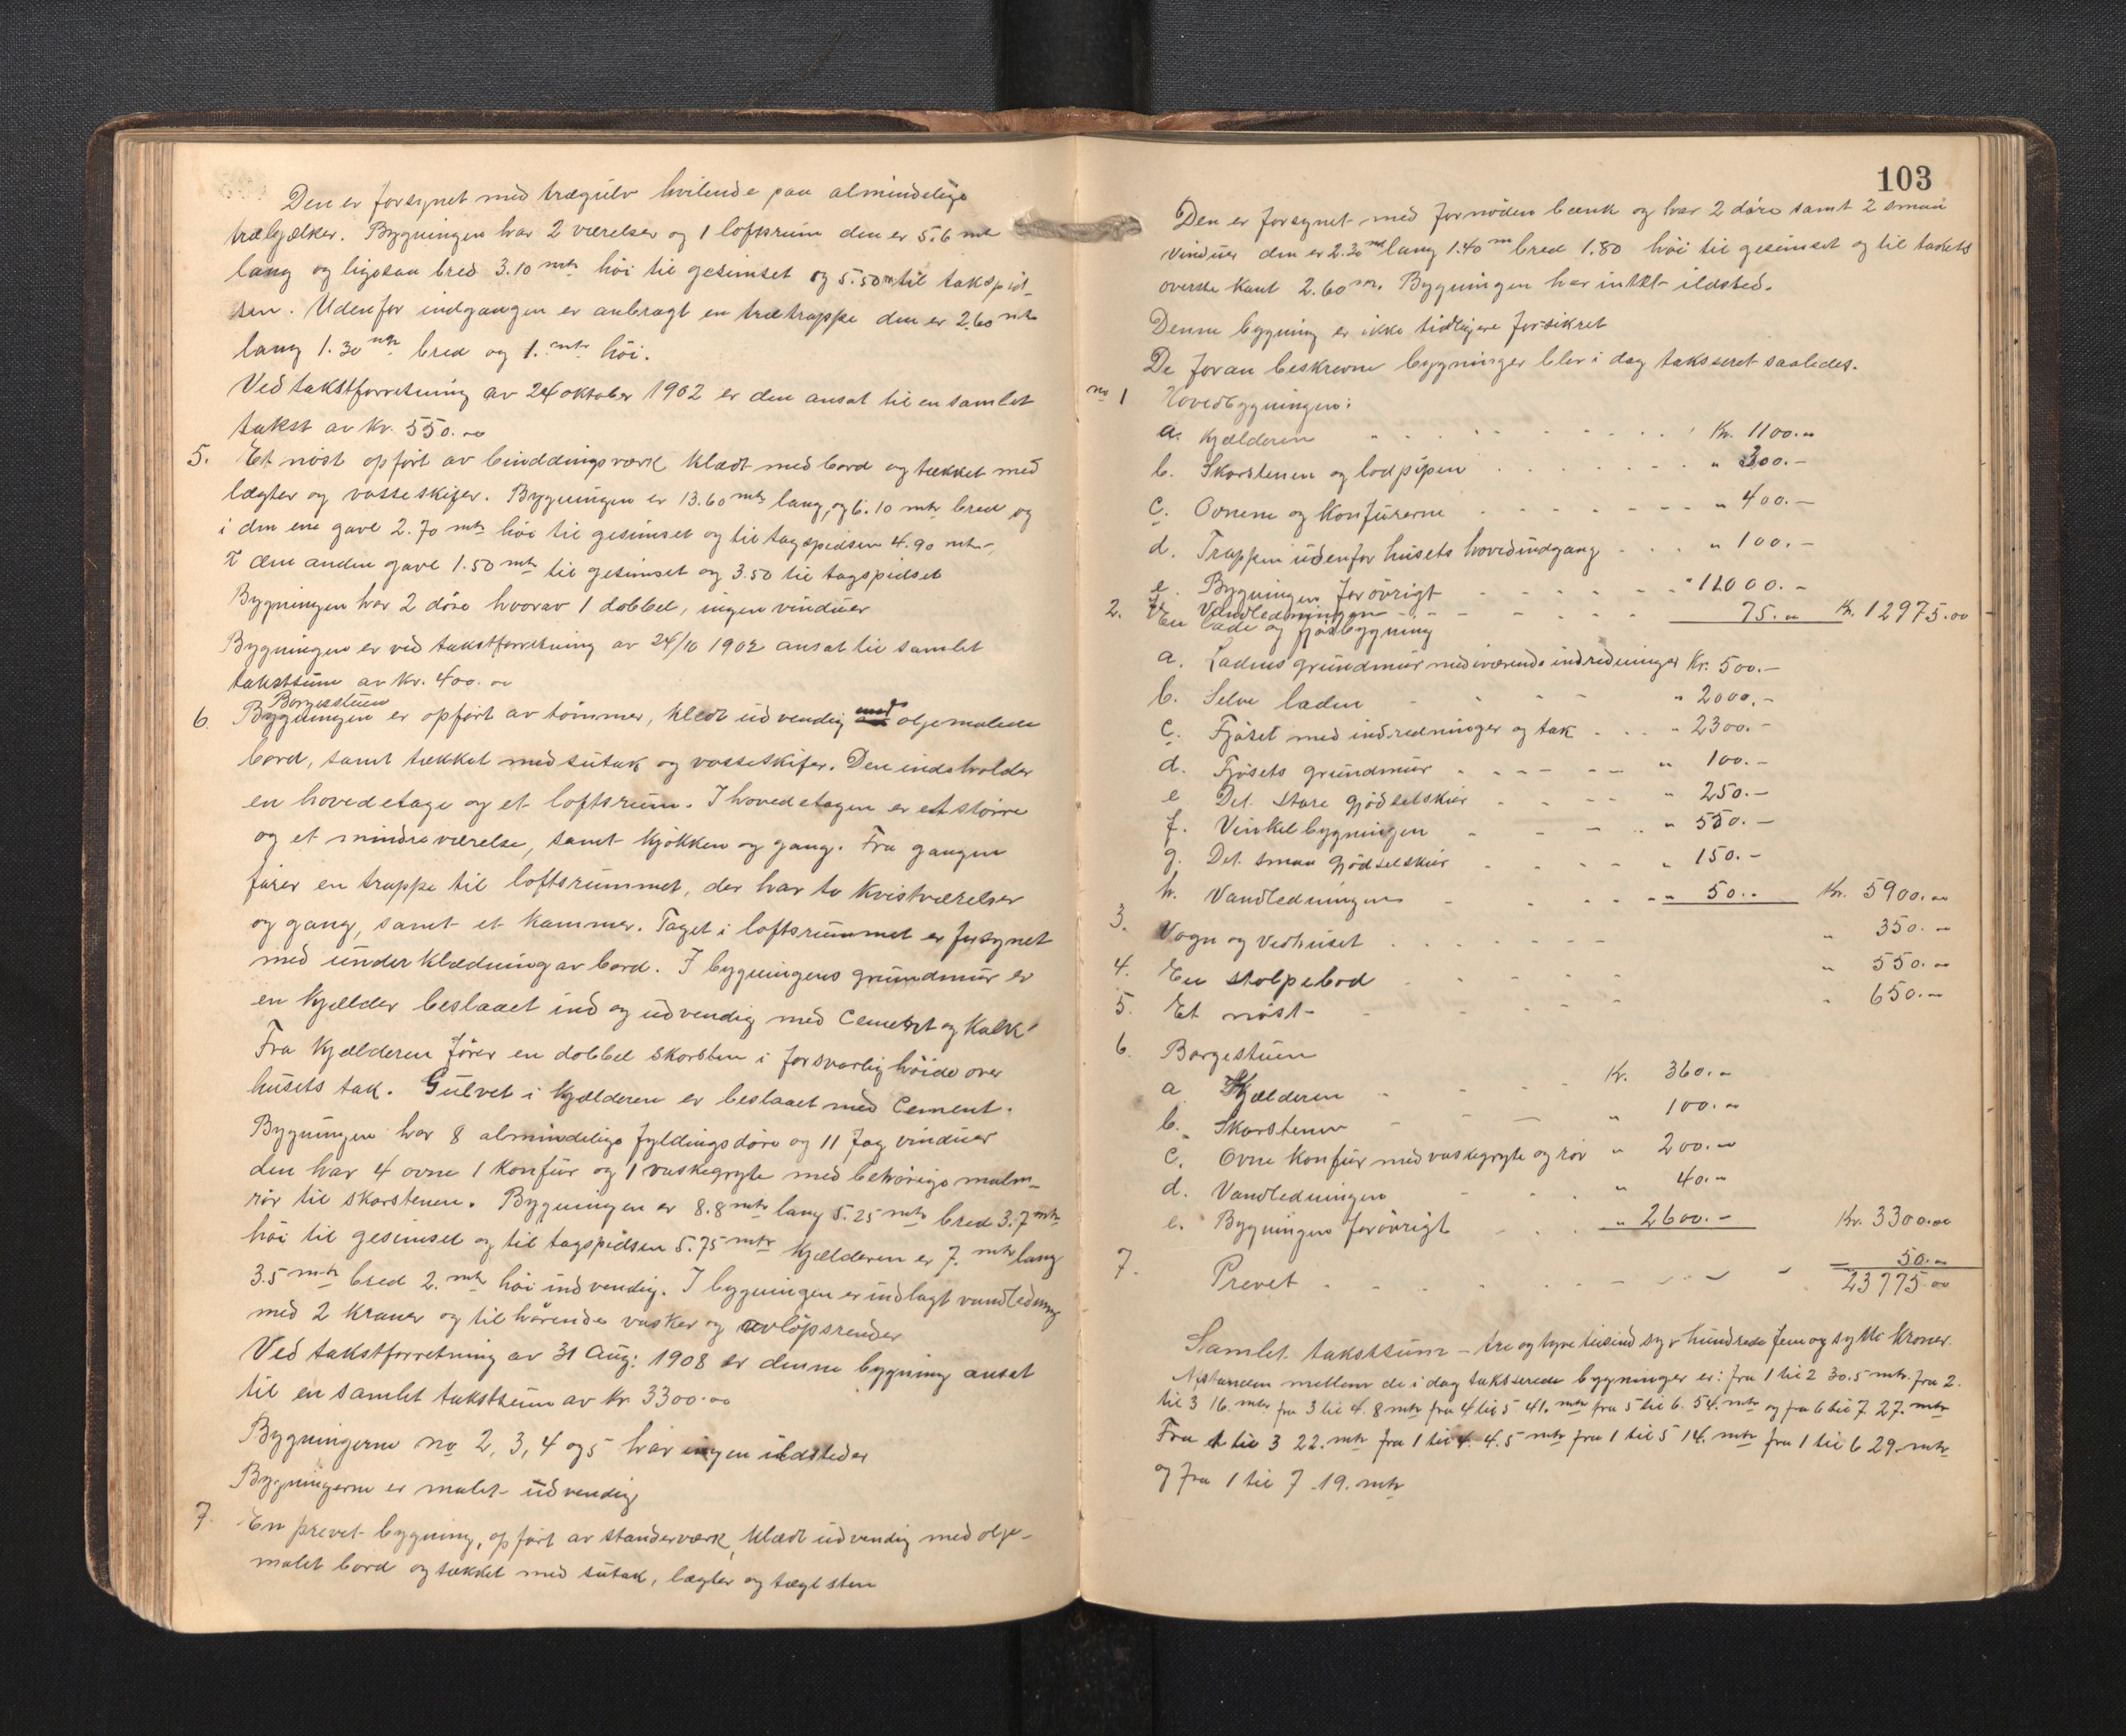 Den er forsynet med trægulv hvilende paa almindelige
træbjelker. Bygningen har 2 værelser og 1 loftsrum den er 5.6 mtr
lang og ligesaa bred 3.10 mtr høi til gesimset og 5.50 m til takspid-
sen. Udenfor indgangen er anbragt en trætrappe den er 2.60 mtr
lang 1.30 mtr bred og 1. mtr høi.
Ved takstforretning av 24 oktober 1902 er den ansat til en samlet
takst av kr. 550.00
5. Et nøst opført av binddingsværk klædt med bord og tækket med
lægter og vosseskifer. Bygningen er 13.60 mtr lang, og 6.10 mtr bred og
i den ene gavl 2.70 mtr høi til gesimset og til tagspidsen 4.90 mtr,
I den anden gavl 1.50 mtr til gesimset og 3.50 til tagspidset
Bygningen har 2 døre hvorav 1 dobbel, ingen vinduer
Bygningen er ved takstforretning av 24/10 1902 ansat til samlet
takstsum av kr. 400.00
Borgestuen
6. Bygningen er opført av tømmer, klædt udvendig med oljemalede
bord, samt tækket med sutak og vosseskifer. Den indeholder
en hovedetage og et loftsrum. I hovedetagen er et større
og et mindre værelse, samt kjøkken og gang. Fra gangen
fører en trappe til loftsrummet, der har to kvistværelser
og gang, samt et kammer. Taget i loftsrummet er forsynet
med underklædning av bord. I bygningens grundmur er
en kjælder beslaaet ind og udvendig med Cement og Kalk
Fra kjælderen fører en dobbel skorsten i forsvarlig høide over
husets tak. Gulvet i kjælderen er beslaaet med Cement.
Bygningen har 8 almindelige fyldingsdøre og 11 fag vinduer
den har 4 ovne 1 konfur og 1 vaskegryte med behørige malm-
rør til skorstenen. Bygningen er 8.8 mtr lang 5.25 mtr bred 3.7 mtr
høi til gesimset og til tagspidsen 5.75 mtr kjælderen er 7. mtr lang
3.5 mtr bred 2. mtr høi indvendig. I bygningen er indlagt vandledning
med 2 kraner og tilhørende vasker og avløpsrender
Ved takstforretning av 31 Aug: 1908 er denne bygning ansat
til en samlet takstsum av kr 3300.00
Bygningerne no 2, 3, 4 og 5 har ingen ildsteder
Bygningerne er malet udvendig
7. En prevet bygning, opført av standerværk, klædt udvendig med olje-
malet bord og tækket med sutak, lægter og tægl sten
103
Den er forsynet med fornøden bænk og har 2 døre samt 2 smaa
vinduer den er 2.30 m lang 1.40 m bred 1.80 høi til gesimset og til takets
øverste kant 2.60 m. Bygningen har intet ildsted.
Denne bygning er ikke tidligere forsikret
De foran beskrevne bygninger blev i dag taksseret saaledes.
no 1 Hovedbygningen:
a. Kjælderen Kr. 1100.00
b. Skorstenen og lodpipen " 300.-
c. Ovnene og Konfurerne " 400.-
d. Trappen udenfor husets hovedindgang " 100.-
e. Bygningen forøvrigt " 11000.-
f. Vandledningen 75.00 Kr. 12975.00
2. En lade og fjøsbygning
a. Ladens grundmur med iværende indredninger Kr. 500.-
b. Selve laden " 2000.-
c. Fjøset med indredninger og tak " 2300.-
d. Fjøsets grundmur " 100.-
e. Det store gjødselskur " 250.-
f. Vinkelbygningen " 550.-
g. Det smaa gjødselskur " 150.-
h. Vandledningen " 50.- Kr. 5900.00
3. Vogn og vedhuset " 350.00
4. En stolpebod " 550.00
5. Et nøst " 650.00
6. Borgestuen
a. Kjælderen Kr. 360.00
b. Skorstenen " 100.00
c. Ovne konfur med vaskegryte og rør " 200.00
d. Vandledningen " 40.00
e. Bygningen forøvrigt " 2600.- Kr. 3300.00
7. Prevet 50.00
23775.00
Samlet takstsum - tre og tyve tusind syv hundrede fem og sytti kroner.
Afstanden mellem de i dag taksserede bygninger er: fra 1 til 2 30.5 mtr. fra 2.
til 3 16. mtr fra 3 til 4. 8 mtr fra 4 til 5 41. mtr fra 5 til 6. 54. mtr og fra 6 til 7 27. mtr
Fra 1 til 3 22. mtr fra 1 til 4. 4.5 mtr fra 1 til 5 14. mtr fra 1 til 6 29. mtr
og fra 1 til 7 19. mtr